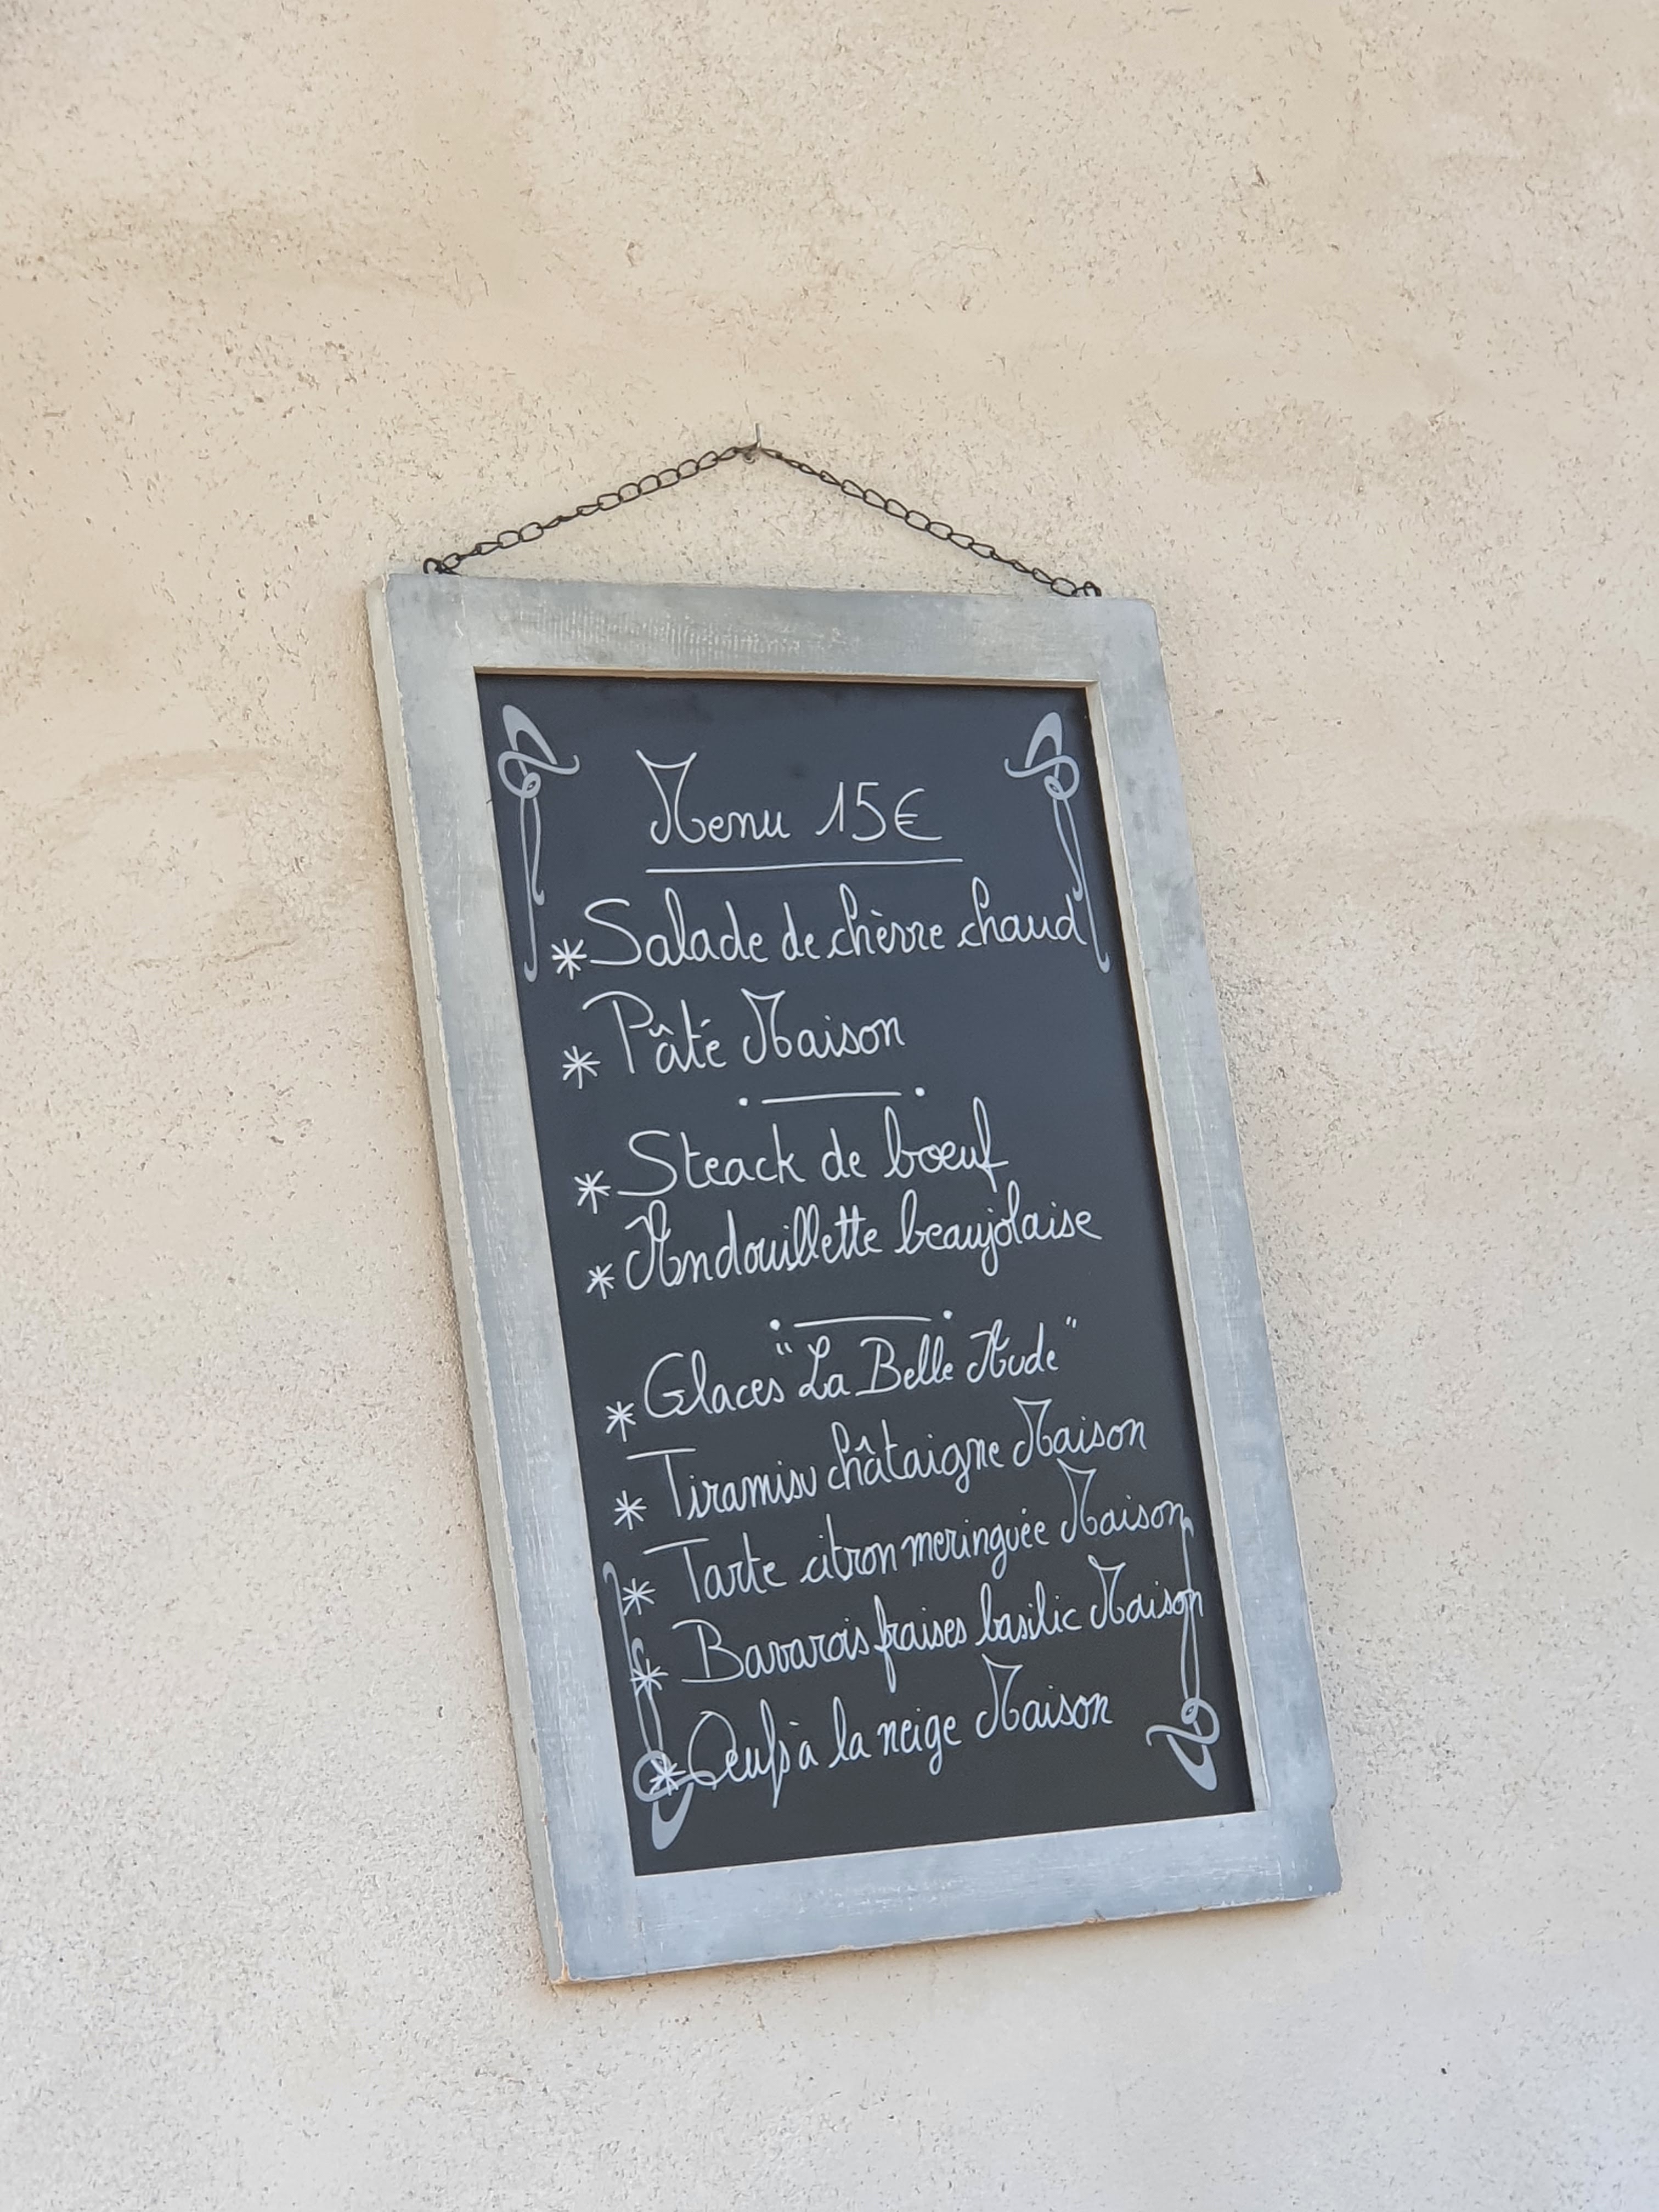 Menu 15€
* Salade de chèvre chaud
* Pâté Maison
* Steack de bœuf
* Andouillette beaujolaise
* Glaces "La Belle Aude"
* Tiramisu châtaigne Maison
* Tarte citron meringuée Maison
* Bavarois fraises basilic Maison
* Oeufs à la neige Maison